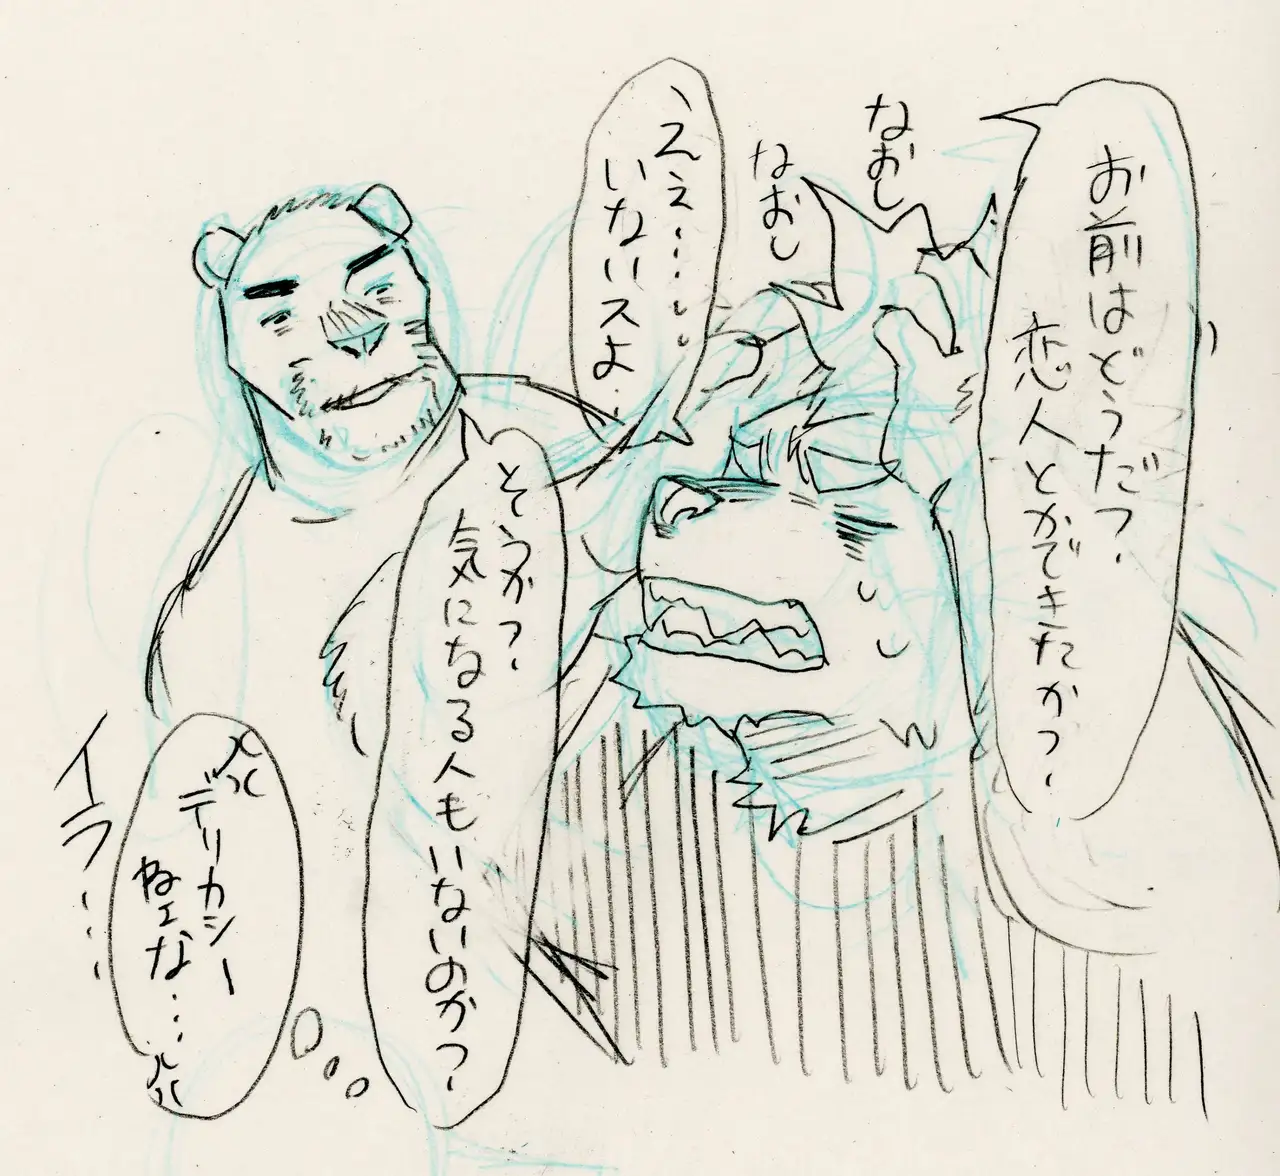 お前はどうだ?
恋人とかできたか?
なおし
なおし
、えぇ……
いないスよ…
そうか?
気になる人もいないのか?
デリカシー
ねェな…
イラ…